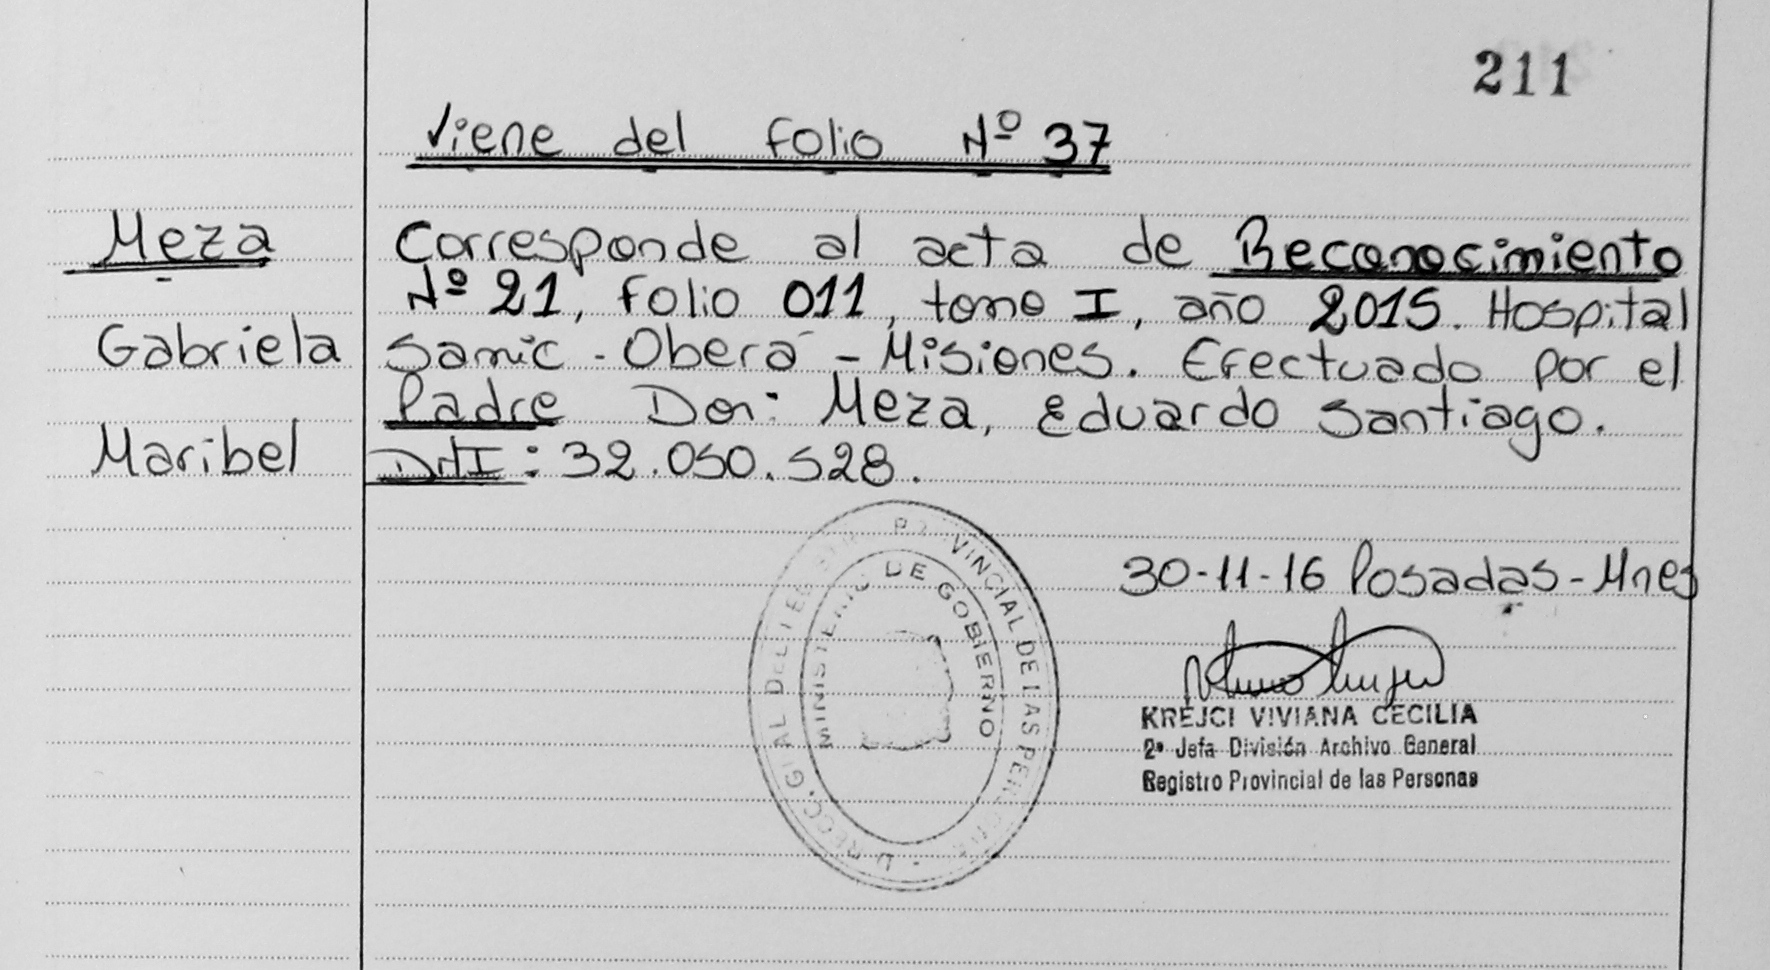 211
Viene del Folio Nº 37
Meza
Corresponde al acta de Reconocimiento
Nº 21, Folio 011, tomo I, año 2015. Hospital
Gabriela
Samic - Oberá - Misiones. Efectuado por el
Padre Don: Meza, Eduardo Santiago.
Maribel
DNI: 32.050.528.
PROVINCIAL DE LAS PERSONAS
MINISTERIO DE GOBIERNO
30-11-16 Posadas - Mnes
KREJCI VIVIANA CECILIA
2ª Jefa División Archivo General
Registro Provincial de las Personas